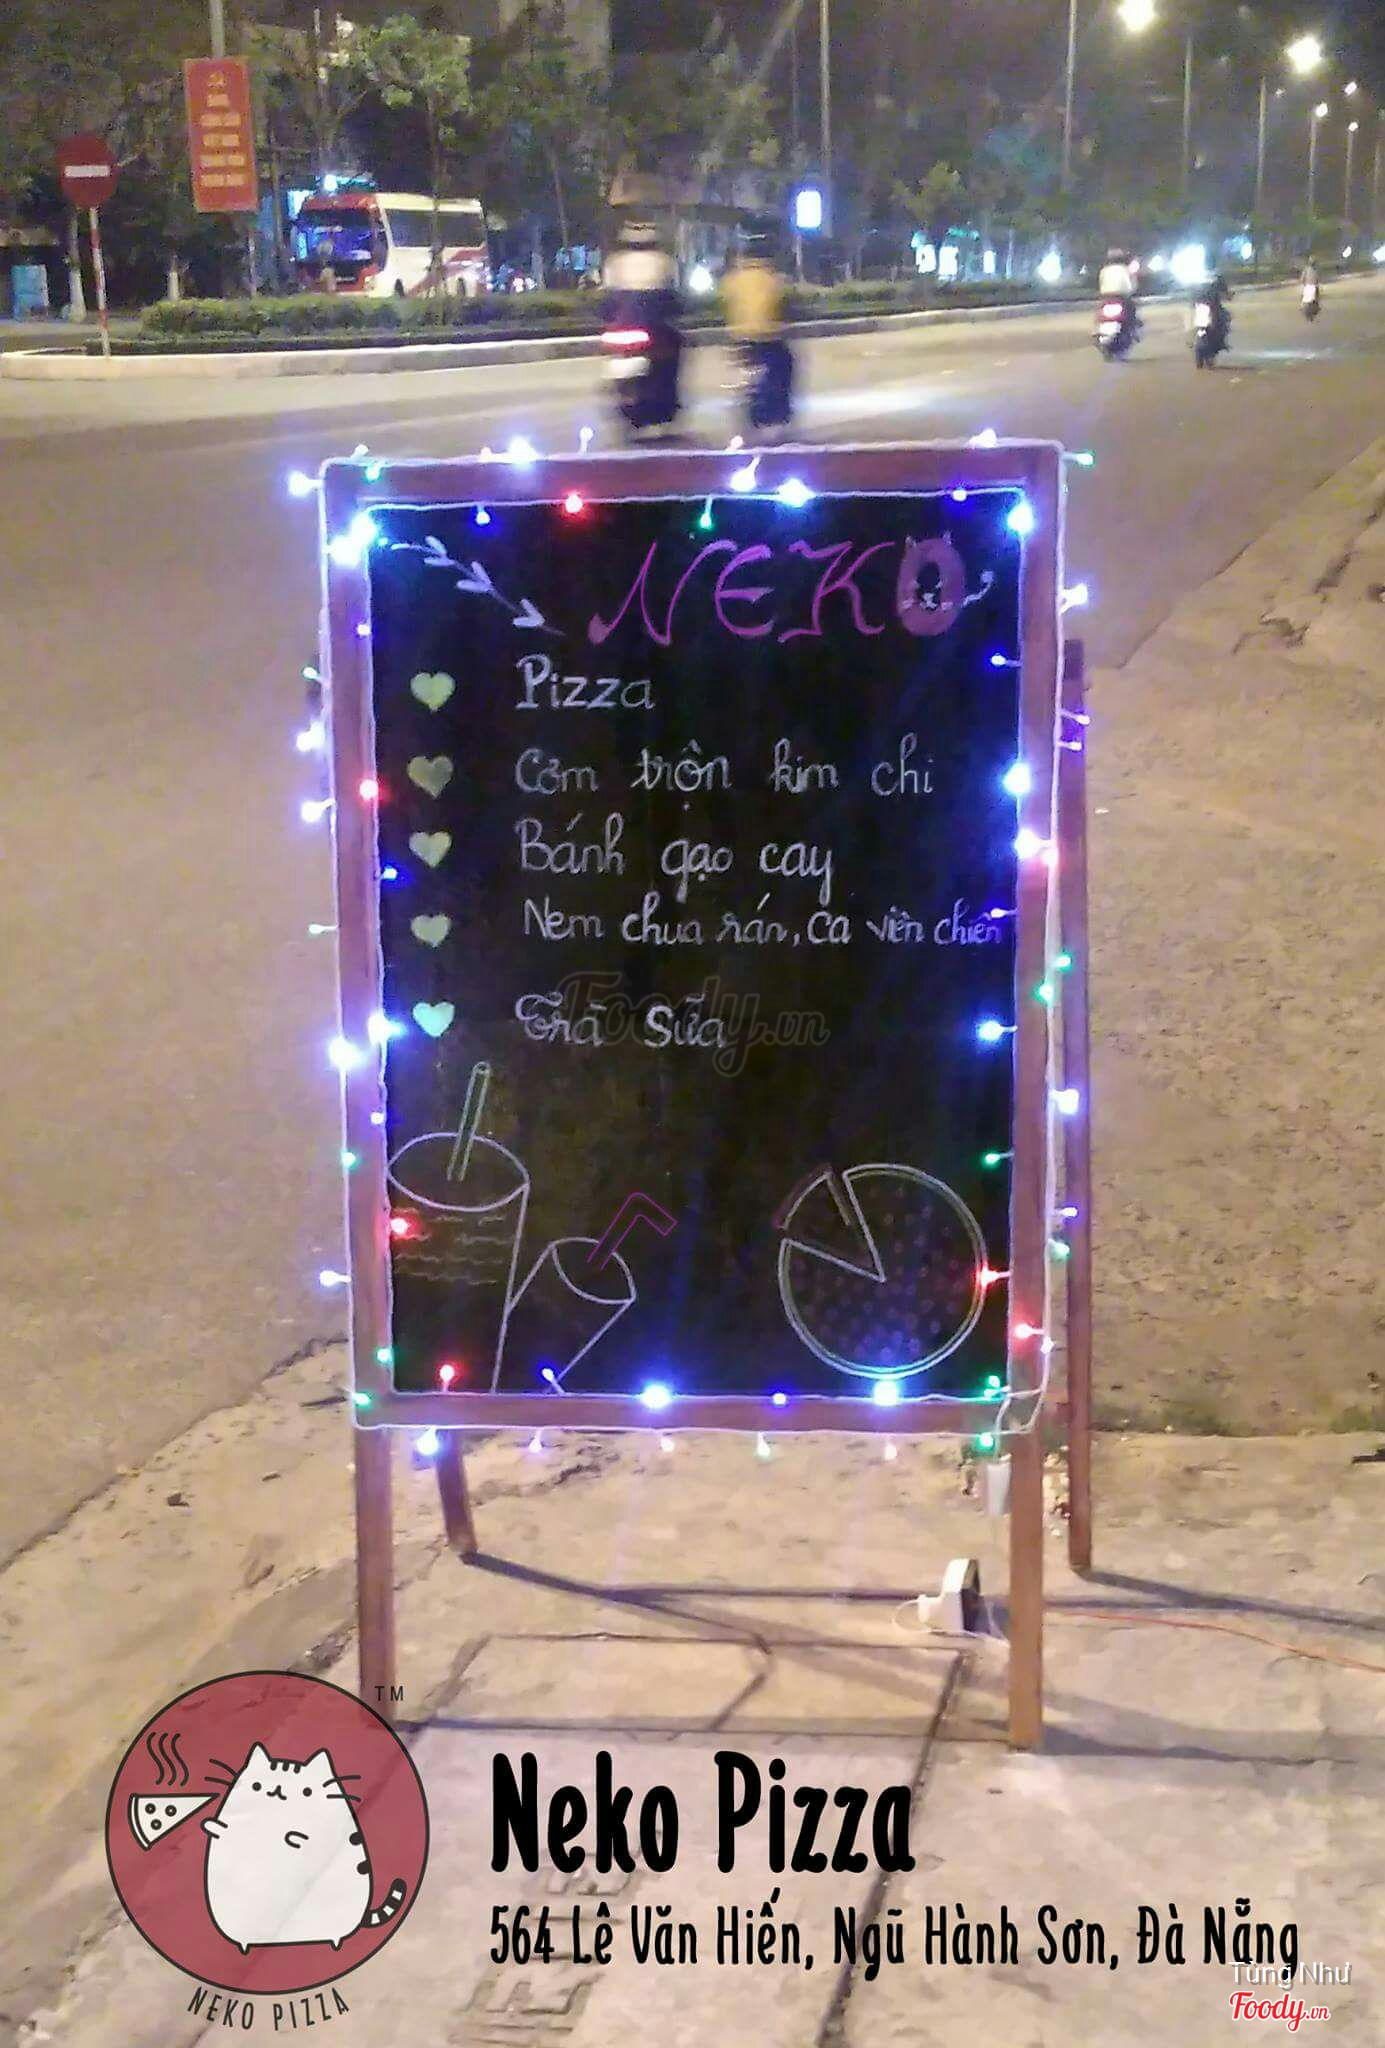 NEKO
Pizza
Cơm trộn kim chi
Bánh gạo cay
Nem chua rán, Cá viên chiên
Trà Sữa
Foody.vn
TM
NEKO PIZZA
Neko Pizza
564 Lê Văn Hiến, Ngũ Hành Sơn, Đà Nẵng
Tùng Như
Foody.vn